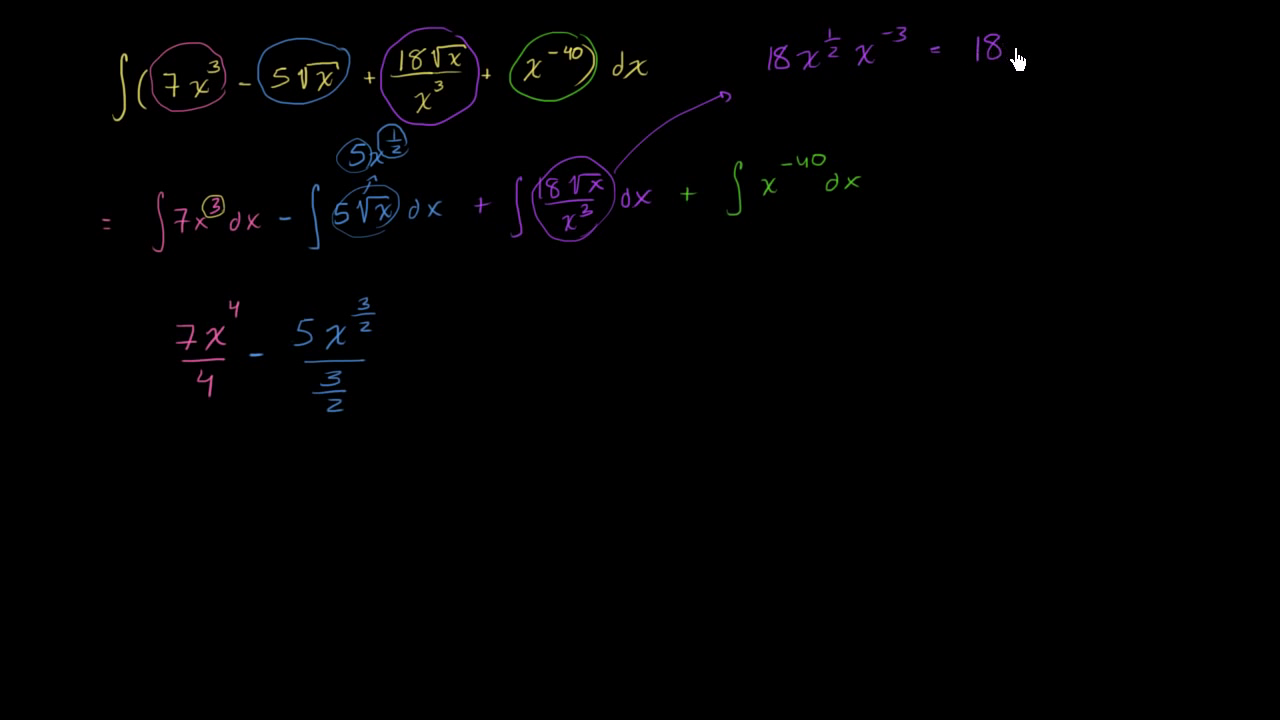 ∫(7x³ - 5√x + 18√x/x³ + x⁻⁴⁰) dx
18x^(1/2) x⁻³ = 18
5x^(1/2)
= ∫7x³ dx - ∫5√x dx + ∫18√x/x³ dx + ∫x⁻⁴⁰ dx
7x⁴/4 - 5x^(3/2)/(3/2)